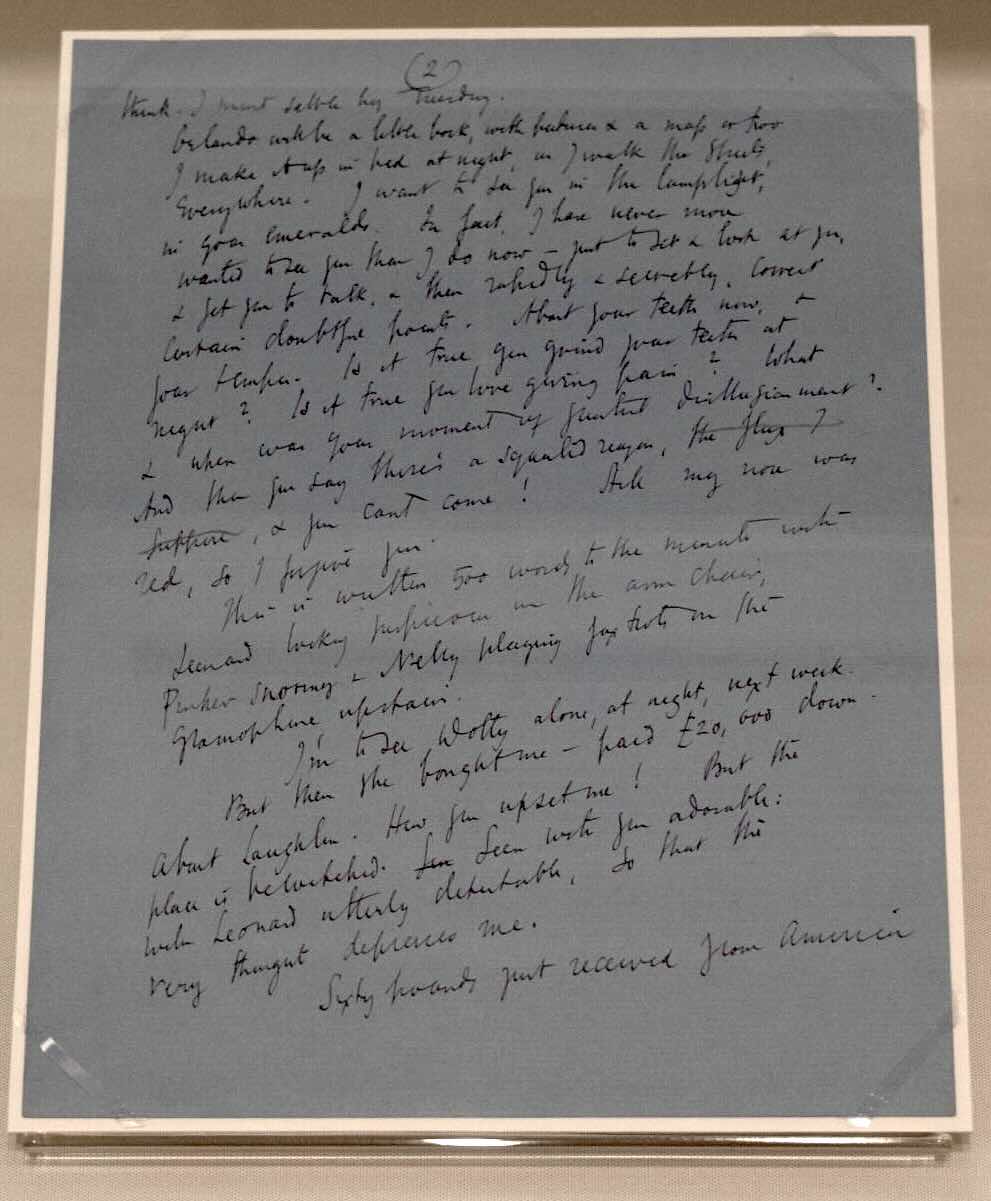 (2)
think. I must settle by Tuesday.
Orlando will be a little book, with pictures & a map or two
I make it up in bed at night, as I walk the Streets,
Everywhere. I want to see you in the lamplight,
in your emeralds. In fact, I have never more
wanted to see you than I do now – just to set & look at you,
& get you to talk, & then rapidly & secretly, correct
certain doubtful points. About your teeth now, &
your temper. Is it true you grind your teeth at
night? Is it true you love giving pain? What
& when was your moment of greatest disillusionment?
And then you say there's a squalid reason, the flux I
suppose, & you cant come! Ask my nose was
red, so I forgive you.
This is written 500 words to the minute with
Leonard looking suspicious in the arm chair,
Pinker snoring & Nelly playing fox trots on the
Gramophone upstairs.
I'm to see Dotty alone, at night, next week.
But then she bought me – paid £20,000 down
About Laughton. How you upset me! But the
place is bewitched. Seen with you adorable:
with Leonard utterly detestable, so that the
very thought depresses me.
Sixty pounds just received from America